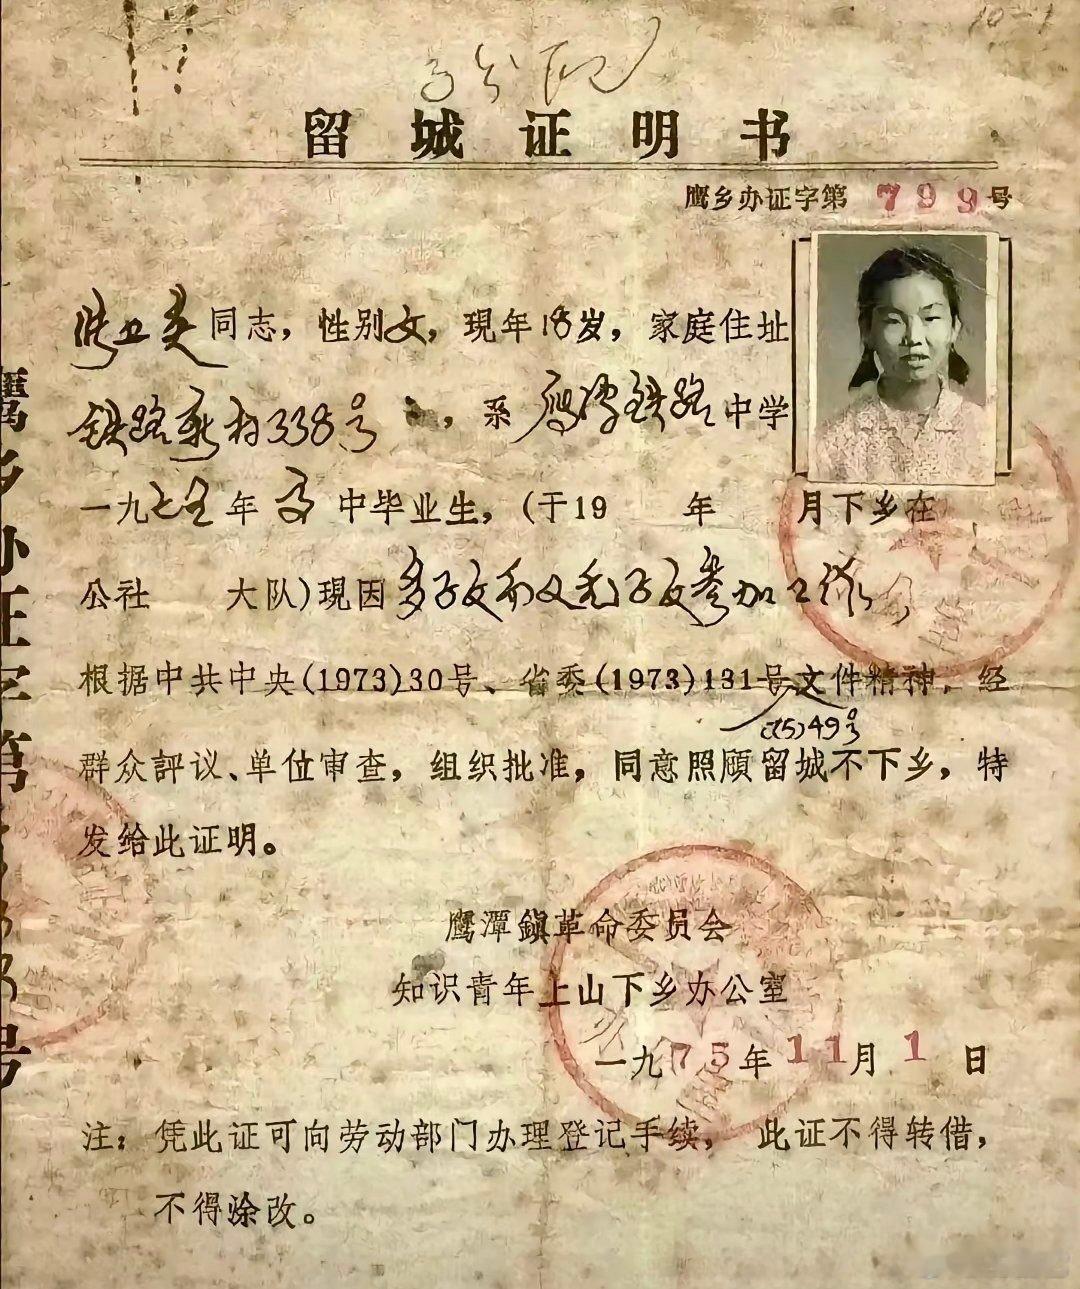 10-1
留城证明书
鹰乡办证字第799号
张卫英同志，性别女，现年18岁，家庭住址
铁路新村338号，系鹰潭铁路中学
一九七五年高中毕业生，(于19 年 月下乡在
公社 大队)現因多子女而又无子女参加工作
根据中共中央(1973)30号、省委(1973)131号文件精神，经
(75)49号文
群众評议、单位审查，组织批准，同意照顾留城不下乡，特
发给此证明。
鹰潭鎮革命委员会
知识青年上山下乡办公室
一九75年11月1日
注：凭此证可向劳动部门办理登记手续，此证不得转借，
不得涂改。
鹰乡办证字第 号